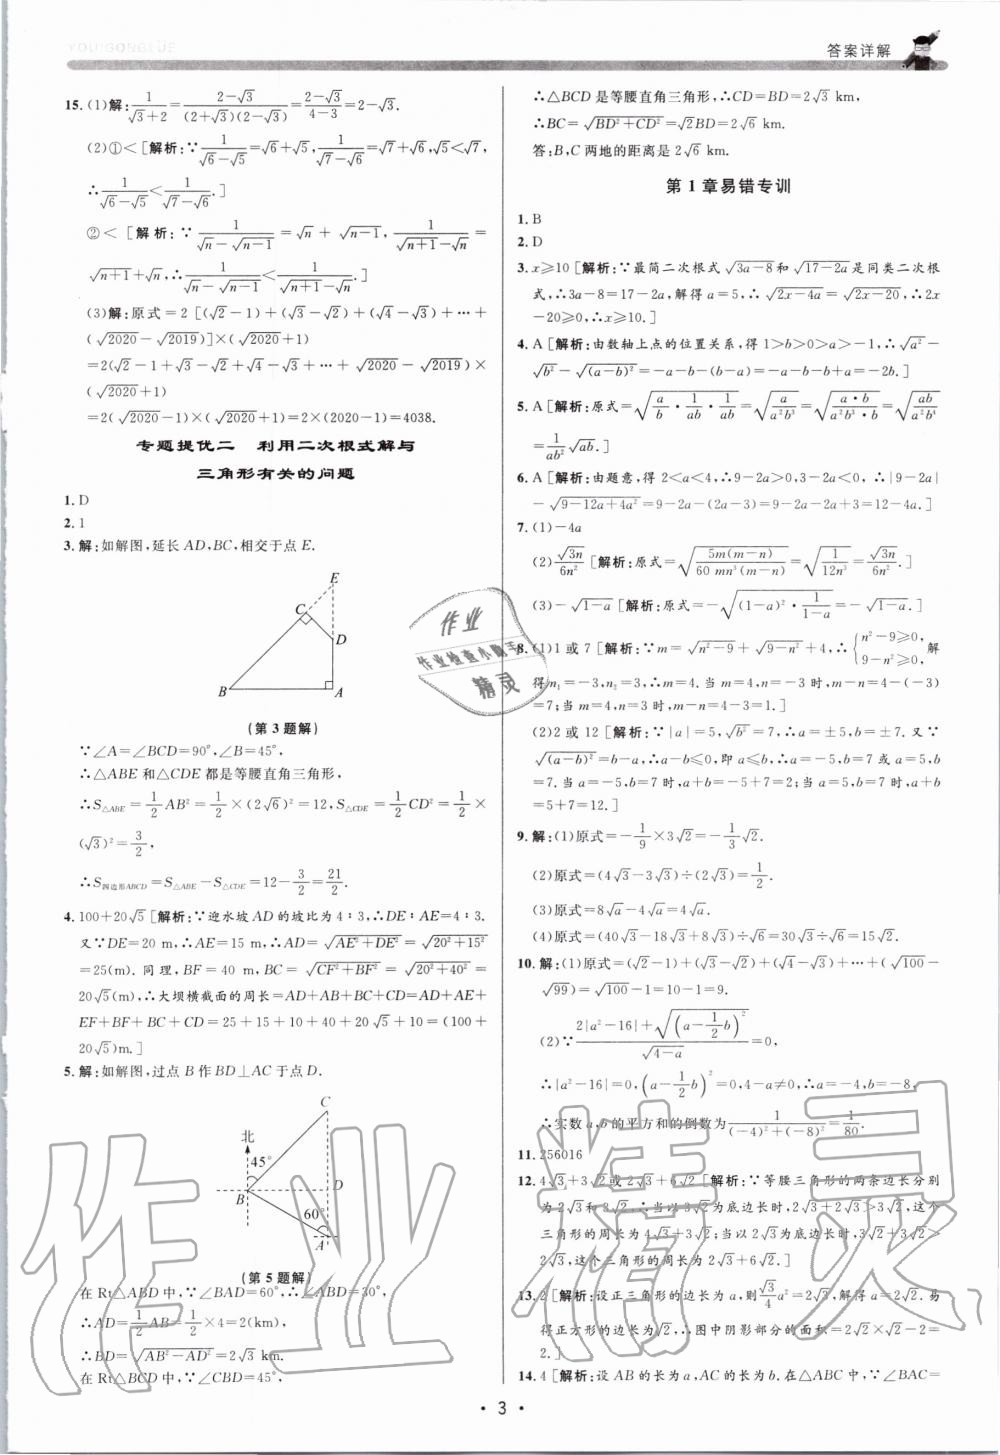 YOUGONGLUE
答案详解
15.(1)解:1/(√3+2)=(2-√3)/((2+√3)(2-√3))=(2-√3)/(4-3)=2-√3.
(2)①<[解析:∵1/(√6-√5)=√6+√5,1/(√7-√6)=√7+√6,√5<√7,
∴1/(√6-√5)<1/(√7-√6).]
②<[解析:∵1/(√n-√(n-1))=√n+√(n-1),1/(√(n+1)-√n)=
√(n+1)+√n,∴1/(√n-√(n-1))<1/(√(n+1)-√n).]
(3)解:原式=2[(√2-1)+(√3-√2)+(√4-√3)+…+
(√2020-√2019)]×(√2020+1)
=2(√2-1+√3-√2+√4-√3+…+√2020-√2019)×
(√2020+1)
=2(√2020-1)×(√2020+1)=2×(2020-1)=4038.
专题提优二 利用二次根式解与
三角形有关的问题
1.D
2.1
3.解:如解图,延长AD,BC,相交于点E.
E
C
D
B
A
(第3题解)
∵∠A=∠BCD=90°,∠B=45°,
∴△ABE和△CDE都是等腰直角三角形,
∴S△ABE=1/2AB²=1/2×(2√6)²=12,S△CDE=1/2CD²=1/2×
(√3)²=3/2,
∴S四边形ABCD=S△ABE-S△CDE=12-3/2=21/2.
4.100+20√5[解析:∵迎水坡AD的坡比为4∶3,∴DE∶AE=4∶3.
又∵DE=20 m,∴AE=15 m,∴AD=√(AE²+DE²)=√(20²+15²)
=25(m).同理,BF=40 m,BC=√(CF²+BF²)=√(20²+40²)=
20√5(m),∴大坝横截面的周长=AD+AB+BC+CD=AD+AE+
EF+BF+BC+CD=25+15+10+40+20√5+10=(100+
20√5)m.]
5.解:如解图,过点B作BD⊥AC于点D.
C
北
45°
B
D
60°
A
(第5题解)
在Rt△ABD中,∵∠BAD=60°,∴∠ABD=30°,
∴AD=1/2AB=1/2×4=2(km),
∴BD=√(AB²-AD²)=2√3 km.
在Rt△BCD中,∵∠CBD=45°,
∴△BCD是等腰直角三角形,∴CD=BD=2√3 km,
∴BC=√(BD²+CD²)=√2BD=2√6 km.
答:B,C两地的距离是2√6 km.
第1章易错专训
1.B
2.D
3.x≥10[解析:∵最简二次根式√(3a-8)和√(17-2a)是同类二次根
式,∴3a-8=17-2a,解得a=5,∴√(2x-4a)=√(2x-20),∴2x
-20≥0,∴x≥10.]
4.A[解析:由数轴上点的位置关系,得1>b>0>a>-1,∴√a²-
√b²-√(a-b)²=-a-b-(b-a)=-a-b-b+a=-2b.]
5.A[解析:原式=√(a/b·1/ab·1/ab)=√(a/a²b³)=√(a·b/a²b³·b)=√(ab/a²b⁴)
=1/ab²√ab.]
6.A[解析:由题意,得2<a<4,∴9-2a>0,3-2a<0,∴|9-2a|
-√(9-12a+4a²)=9-2a-(2a-3)=9-2a-2a+3=12-4a.]
7.(1)-4a
(2)√3n/6n²[解析:原式=√(5m(m-n)/60mn³(m-n))=√(1/12n³)=√3n/6n².]
(3)-√(1-a)[解析:原式=-√((1-a)²·1/(1-a))=-√(1-a).]
8.(1)1或7[解析:∵m=√(n²-9)+√(9-n²)+4,∴{n²-9≥0, 9-n²≥0,解
得n₁=-3,n₂=3,∴m=4.当m=4,n=-3时,m-n=4-(-3)
=7;当m=4,n=3时,m-n=4-3=1.]
(2)2或12[解析:∵|a|=5,√b²=7,∴a=±5,b=±7.又∵
√(a-b)²=b-a,∴a-b≤0,即a≤b,∴a=-5,b=7或a=5,b
=7.当a=-5,b=7时,a+b=-5+7=2;当a=5,b=7时,a+b
=5+7=12.]
9.解:(1)原式=-1/9×3√2=-1/3√2.
(2)原式=(4√3-3√3)÷(2√3)=1/2.
(3)原式=8√a-4√a=4√a.
(4)原式=(40√3-18√3+8√3)÷√6=30√3÷√6=15√2.
10.解:(1)原式=(√2-1)+(√3-√2)+(√4-√3)+…+(√100-
√99)=√100-1=10-1=9.
(2)∵(2|a²-16|+√(a-1/2b)²)/√(4-a)=0,
∴|a²-16|=0,(a-1/2b)²=0,4-a≠0,∴a=-4,b=-8,
∴实数a,b的平方和的倒数为1/((-4)²+(-8)²)=1/80.
11.256016
12.4√3+3√2或2√3+6√2[解析:∵等腰三角形的两条边长分别
为2√3和3√2,∴当以3√2为底边长时,2√3+2√3>3√2,这个
三角形的周长为4√3+3√2;当以2√3为底边长时,3√2+3√2>
2√3,这个三角形的周长为2√3+6√2.]
13.2[解析:设正三角形的边长为a,则√3/4a²=2√3,解得a=2√2.易
得正方形的边长为√2,∴图中阴影部分的面积=2√2×√2-2=
2.]
14.4[解析:设AB的长为a,AC的长为b.在△ABC中,∵∠BAC=
· 3 ·
作业
作业检查小助手
精灵
作业精灵